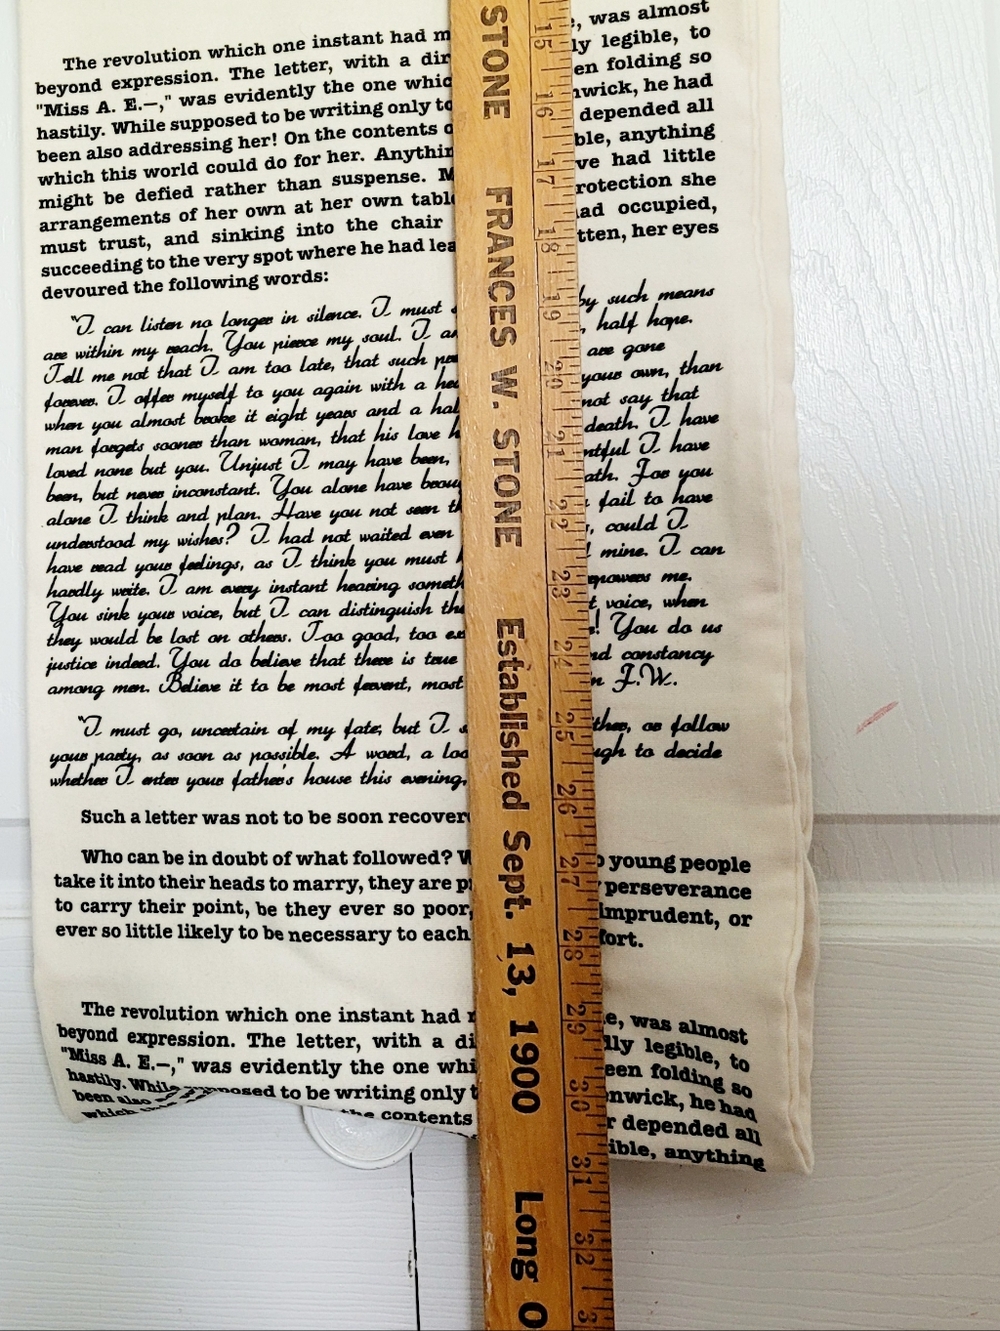 The revolution which one instant had m e, was almost
beyond expression. The letter, with a dir ly legible, to
"Miss A. E.—," was evidently the one whic en folding so
hastily. While supposed to be writing only to nwick, he had
been also addressing her! On the contents o depended all
which this world could do for her. Anythin ble, anything
might be defied rather than suspense. M ve had little
arrangements of her own at her own tabl rotection she
must trust, and sinking into the chair ad occupied,
succeeding to the very spot where he had lea tten, her eyes
devoured the following words:
"I can listen no longer in silence. I must by such means
are within my reach. You pierce my soul. I a , half hope.
Tell me not that I am too late, that such pre are gone
forever. I offer myself to you again with a hea your own, than
when you almost broke it eight years and a hal not say that
man forgets sooner than woman, that his love h death. I have
loved none but you. Unjust I may have been, ntful I have
been, but never inconstant. You alone have brou ath. For you
alone I think and plan. Have you not seen th fail to have
understood my wishes? I had not waited even , could I
have read your feelings, as I think you must mine. I can
hardly write. I am every instant hearing someth epowers me.
You sink your voice, but I can distinguish the t voice, when
they would be lost on others. Too good, too ex ! You do us
justice indeed. You do believe that there is true nd constancy
among men. Believe it to be most fervent, most n F.W.
"I must go, uncertain of my fate, but I s ther, or follow
your party, as soon as possible. A word, a loo ugh to decide
whether I enter your father's house this evening,
Such a letter was not to be soon recover
Who can be in doubt of what followed? W o young people
take it into their heads to marry, they are p perseverance
to carry their point, be they ever so poor, imprudent, or
ever so little likely to be necessary to each fort.
The revolution which one instant had e, was almost
beyond expression. The letter, with a di lly legible, to
"Miss A. E.—," was evidently the one whi een folding so
hastily. While posed to be writing only t nwick, he had
been also r depended all
which the contents ible, anything
STONE FRANCES W. STONE Established Sept. 13, 1900 Long
15 16 17 18 19 20 21 22 23 24 25 26 27 28 29 30 31 32